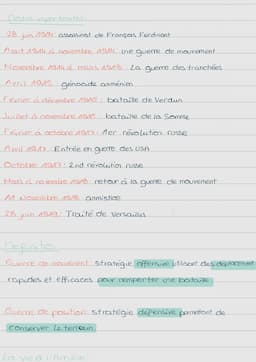 Dates importantes:
28 juin 1914: assassinat de François Ferdinant
Août 1914 à novembre 1914: une guerre de mouvement
Novembre 1914 à mars 1918: La guerre des tranchées
Avril 1915: génocide arménien
Février à décembre 1916: bataille de Verdun
Juillet à novembre 1916: bataille de la Somme
Février à octobre 1917: 1er révolution russe
Avril 1917: Entrée en guerre des USA
Octobre 1917: 2nd révolution russe
Mars à novembre 1918: retour à la guerre de mouvement
11 Novembre 1918: armistice
28 juin 1919: Traité de Versailles
Définition
Guerre de mouvement: stratégie offensive utilisant des déplacement
rapides et efficaces pour remporter une bataille
Guerre de position: stratégie défensive permettant de
conserver le terrain
La vie à l'arrière